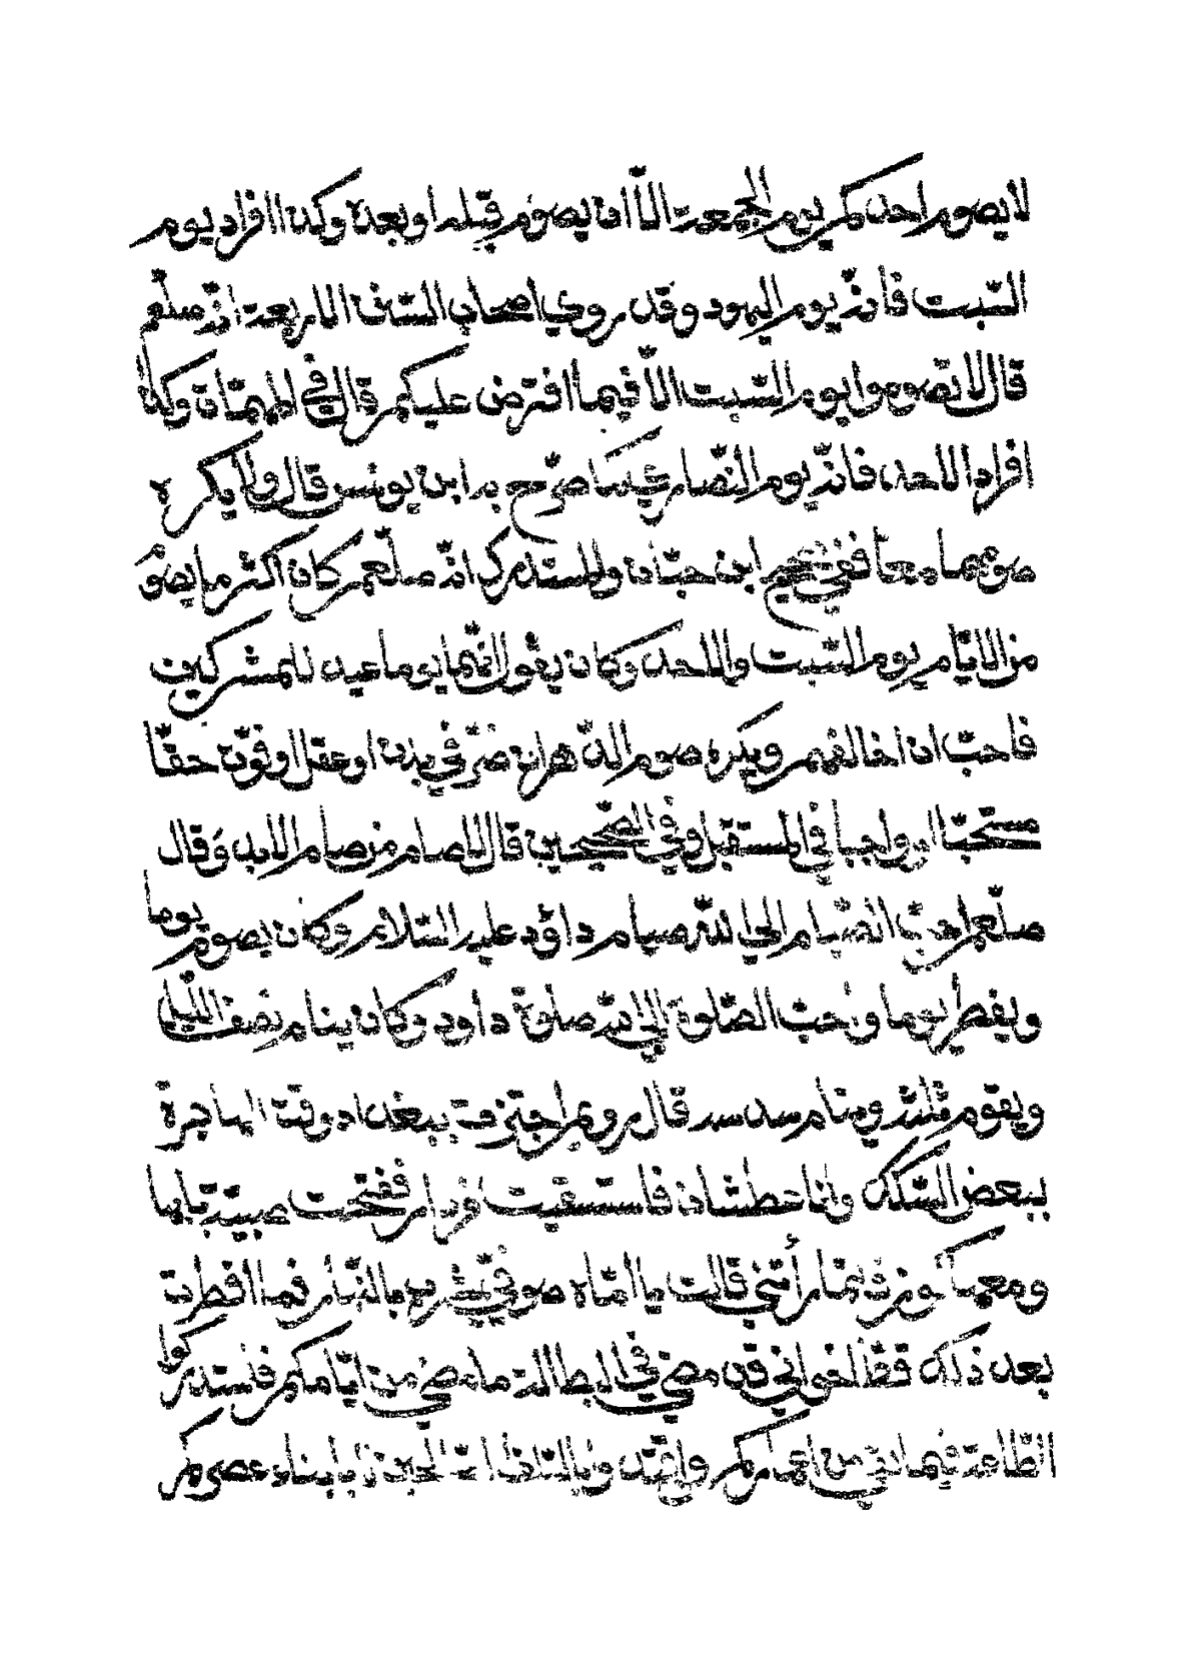 لا يصوم احدكم يوم الجمعة الا ان يصوم قبله او بعده وكذا افراد يوم
السّبت فانه يوم اليهود وقد روي اصحاب السّنن الاربعة انه صلّعم
قال لا تصوموا يوم السّبت الاّ فيما افترض عليكم قال في المهمّات وكذا
افراد الاحد فانه يوم النّصاري كما صّرح به ابن يونس قال ولا يكره
صومهما معا ففي صحيح ابن حبّان والمستدرك انّه صلّعم كان اكثر ما يصو
من الايّام يوم السّبت والاحد وكان يقول انّهما يوما عيد للمشركين
فاحبّ ان اخالفهم ويكره صوم الدّهر ان ضرّ في بدن او عقل او فوّت حقّا
مستحبّا او واجبا في المستقبل وفي الصّحيحين قال لا صام من صام الابد وقال
صلّعم احبّ الصّيام الي الله صيام داؤد عليه السّلام وكان يصوم يوما
ويفطر يوما واحبّ الصّلوة الي الله صلوة داود وكان ينام نصف اللّيل
ويقوم ثلثه وينام سدسه قال رويم اجتزت ببغداد وقت الهاجرة
ببعض السّكك وانا عطشان فاستسقيت من دار ففتحت صبيّة بابها
ومعها كوز فلمّا رأتني قالت يا امّاه صوفي يشرب بالنّهار فما افطرت
بعد ذلك قطّ اخواني قد مضي في البطالة ما مضي من ايّامكم فاستدركوا
الطّاعة فيما بقي من اعماركم عصركم